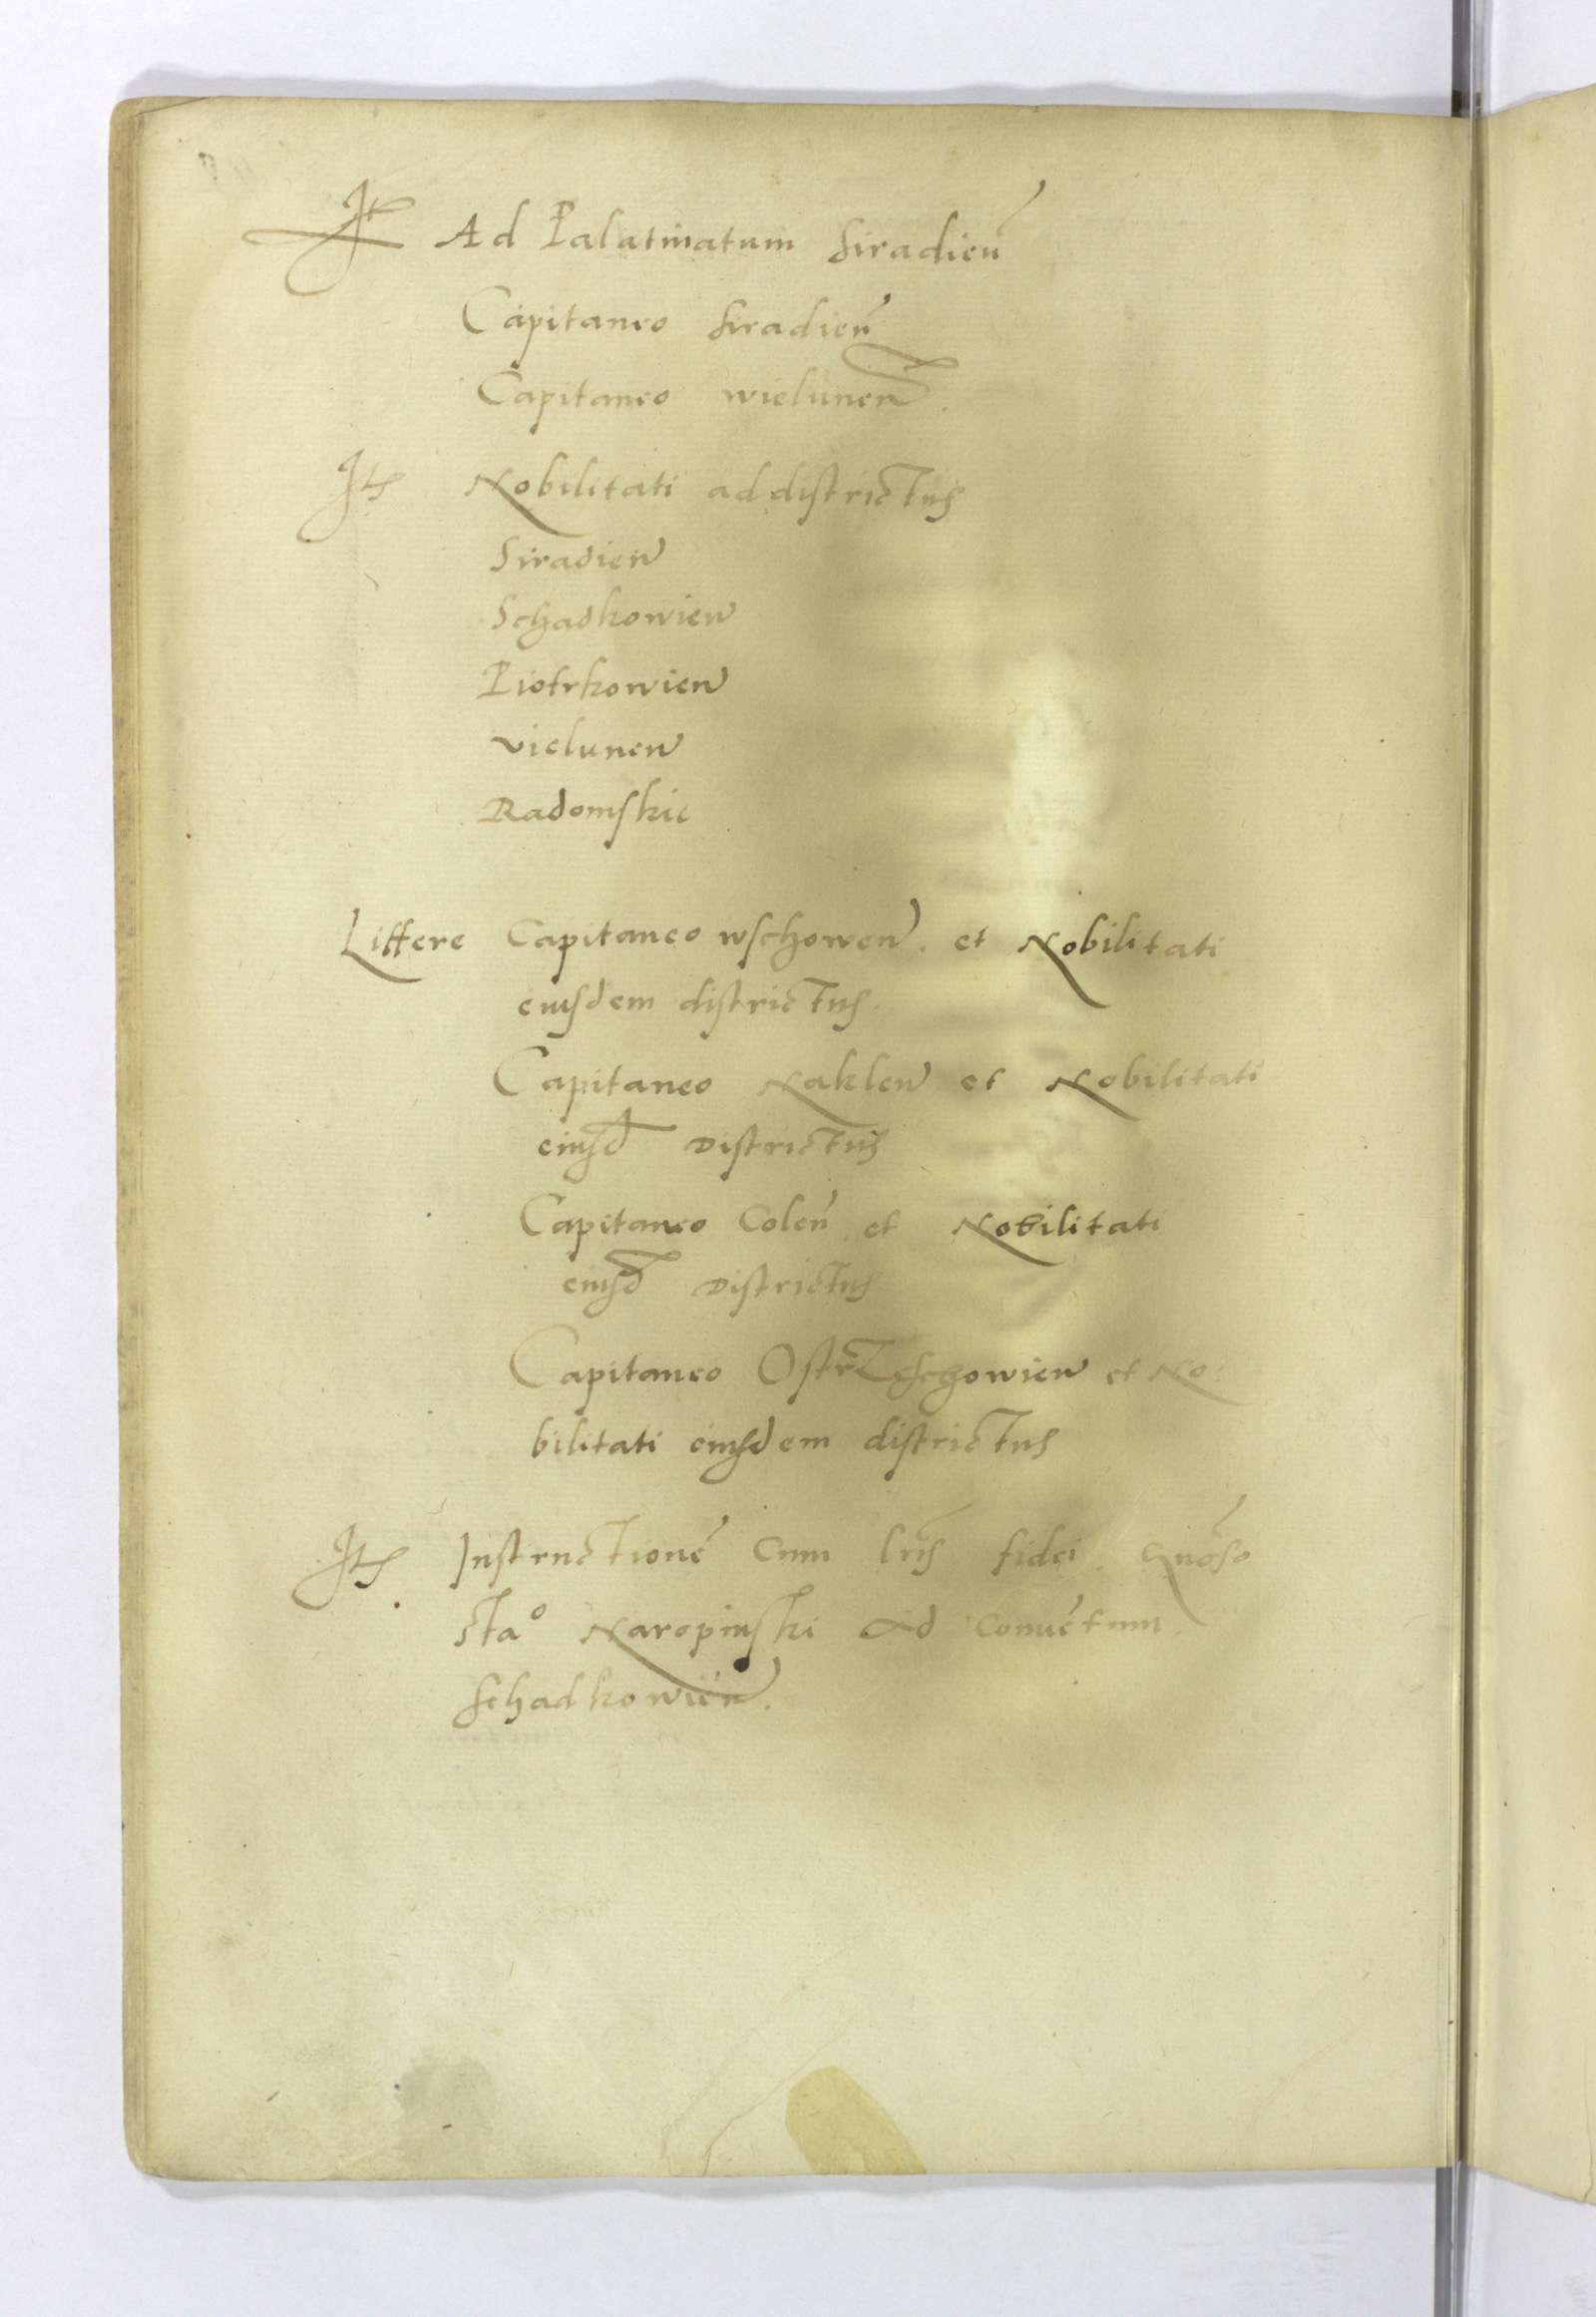 It Ad Palatinatum Siradien̄
Capitaneo Siradien̄
Capitaneo wielunen̄.
Itē Nobilitati ad districtus
Siradien
Schadkowien
Piotrkowien
vielunen
Radomskie
Littere Capitaneo wschowen. et Nobilitati
eiusdem districtus.
Capitaneo Naklen et Nobilitati
eiusd Districtus
Capitaneo Colen̄ et Nobilitati
eiusd Districtus
Capitaneo Ostrzeschowien et No:
bilitati eiusdem districtus
Itē Instructionē Cum lr̄is fidei.
Naropinski Ad Conuētum
Schadkowien.